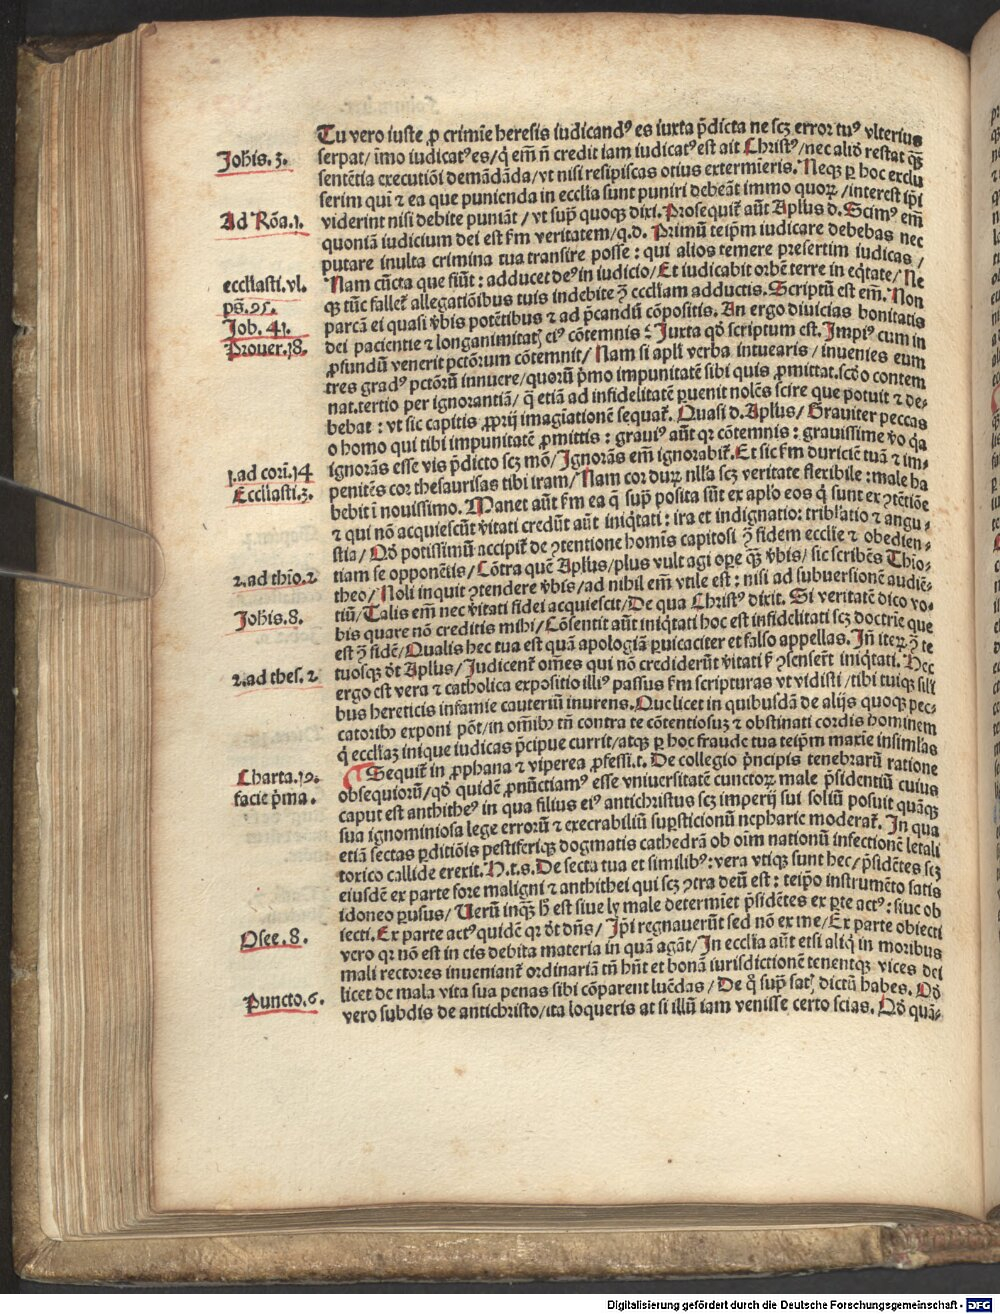 Tu vero iuste ꝓ crimīe heresis iudicandꝰ es iuxta p̄dicta ne scꝫ error tuꝰ vlterius
Johis. 3.
serpat/ imo iudicatꝰ es/ q̇ em̄ n̄ credit iam iudicatꝰ est ait Christꝰ/ nec aliō restat qꝫ̄
sentētia executiōi demādāda/ vt nisi resipiscas otius extermieris. Neqꝫ ꝑ hoc exclu
serim qui ⁊ ea que punienda in ecclia sunt puniri debeāt immo quoꝝ /interest ip̄i
Ad Rōa. 1.
viderint nisi debite puniāt / vt sup̄ quoqꝫ dixi. Prosequit᷑ aūt Aplus d. Scimꝰ em̄
quoniā iudicium dei est ẜm veritatem/ q.d. Primū teip̄m iudicare debebas nec
putare inulta crimina tua transire posse : qui alios temere presertim iudicas /
ecclīasti. vl.
Nam cūcta que fiūt : adducet deꝰ in iudicio/ Et iudicabit orbē terre in eq̇tate/ Ne
ps̄. 95.
qꝫ tūc fallet᷑ allegatiōibus tuis indebite ꝯ̄ eccliam adductis. Scriptū est em̄. Non
Job. 41.
parcā ei quasi v̄bis potētibus ⁊ ad p̄candū cōpositis. An ergo diuicias bonitatis
Prouer. 18.
dei pacientie ⁊ longanimitatꝭ eiꝰ cōtemnis : Iuxta qḋ scriptum est. Impiꝰ cum in
ꝓfundū venerit pctōrum cōtemnit/ Nam si apli verba intuearis / inuenies eum
tres gradꝰ pctōrū innuere/ quorū p̄mo impunitatē sibi quis ꝓmittat. scḋo contem
nat. tertio per ignorantiā/ q̇ etiā ad infidelitatē ꝑuenit nolēs scire que potuit ⁊ de-
bebat : vt sic capitis ꝓprij imagīationē sequat᷑. Quasi d. Aplus/ Grauiter peccas
o homo qui tibi impunitatē ꝓmittis : grauiꝰ aūt qꝛ cōtemnis : grauissime v̄o q̇a
1. ad corī. 14
ignorās esse vis p̄dicto scꝫ mō/ Ignorās em̄ ignorabit᷑. Et sic ẜm duriciē tuā ⁊ im-
Ecclīasti. 3.
penitēs cor thesaurisas tibi iram/ Nam cor durꝝ nlīa scꝫ veritate flexibile : male ha
bebit ī nouissimo. Manet aūt ẜm ea q̄ sup̄ posita sūt ex aplo eos q̇ sunt ex ꝯtētiōe
⁊ qui nō acquiescūt v̄itati credūt aūt iniq̇tati : ira et indignatio: tribl̄atio ⁊ angu-
stia/ Qḋ potissimū accipit᷑ de ꝯtentione homīs capitosi ꝯ̄ fidem ecclīe ⁊ obedien-
2. ad thio. 2
tiam se opponētis/ Cōtra quē Aplus/ plus vult agi ope qꝫ̄ v̄bis/ sic scribēs Thio-
theo/ Noli inquit ꝯtendere v̄bis/ ad nihil em̄ vtile est : nisi ad subuersionē audiē-
Johis. 8.
tiū/ Talis em̄ nec v̄itati fidei acquiescit/ De qua Christꝰ dixit. Si veritatē dico vo-
bis quare nō creditis mihi/ Cōsentit aūt iniq̇tati hoc est infidelitati scꝫ doctrīe que
est ꝯ̄ fidē/ Qualis hec tua est quā apologiā ꝑuicaciter et falso appellas. In̄ iteꝝ ꝯ̄ te
2. ad thes. 2
tuosqꝫ d̄t Aplus/ Judicent᷑ om̄es qui nō crediderūt v̄itati ẜ ꝯsenserūt iniq̇tati. Hec
ergo est vera ⁊ catholica expositio illiꝰ passus ẜm scripturas vt vidisti /tibi tuiqꝫ sili
bus hereticis infamie cauteriū inurens. Que licet in quibusdā de alijs quoqꝫ pec-
catoribꝫ exponi pōt/ in om̄ibꝫ tn̄ contra te cōtentiosuꝫ ⁊ obstinati cordis hominem
q̇ eccliaꝫ inique iudicas p̄cipue currit/ atqꝫ ꝑ hoc fraude tua teip̄m maxīe insimlas
Charta. 19.
¶ Sequit᷑ in ꝓphana ⁊ viperea ꝓfessi. t. De collegio p̄ncipis tenebrarū ratione
facie p̄ma.
obsequiorū/ qḋ quidē ꝓnūctiamꝰ esse vniuersitatē cunctoꝝ male p̄sidentiū cuius
caput est antitheꝰ in qua filius eiꝰ antichristus scꝫ imperij sui soliū posuit quāqꝫ
sua ignominiosa lege errorū ⁊ execrabiliū suꝑsticionū nepharie moderat᷑. In qua
etiā sectas ꝑditiōis pestiferiqꝫ dogmatis cathedrā ob oīm nationū infectionē letali
toxico callide erexit. H. t. s. De secta tua et similibꝰ : vera vtiqꝫ sunt hec/ p̄sidētes scꝫ
eiusdē ex parte fore maligni ⁊ anthithei qui scꝫ ꝯtra deū est : teip̄o instrumēto satis
idoneo ꝑusus/ Verū inqꝫ h̄ est siue ly male determīet p̄sidētes ex ꝑte actꝰ : siue ob
Osee. 8.
iecti. Ex parte actꝰ quidē qꝛ d̄t dn̄s/ Ip̄i regnauerūt sed nō ex me/ Ex parte obiecti
vero qꝛ nō est in eis debita materia in quā agāt/ In ecclīa aūt etsi aliq̇ in moribus
mali rectores inueniant᷑ ordinariā tn̄ hn̄t et bonā iurisdictionē tenentqꝫ vices dei
Puncto. 6.
licet de mala vita sua penas sibi cōparent luēdas/ De q̇ sup̄ satꝭ dictū habes. Qḋ
vero subdis de antichristo/ ita loqueris at si illū iam venisse certo scias. Qḋ quā-
Digitalisierung gefördert durch die Deutsche Forschungsgemeinschaft - DFG